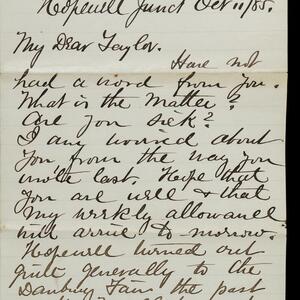 Hopewell Junct Oct 11/85.
My Dear Taylor.
Have not
had a word from you.
What is the Matter?
Are you sick?
I am worried about
you from the way you
wrote last. Hope that
you are well & that
my weekly allowance
will arrive to morrow.
Hopewell turned out
quite generally to the
Danbury Fair the past